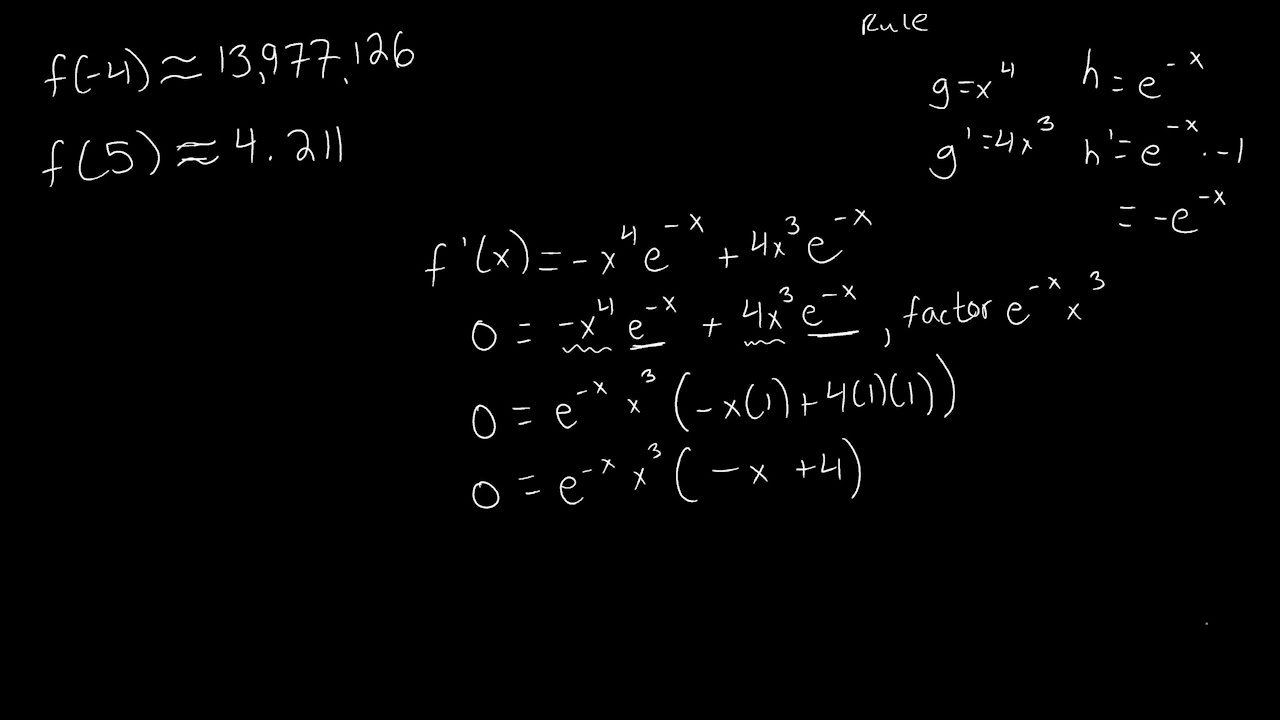 f(-4) ≈ 13,977.126
f(5) ≈ 4.211
Rule
g = x⁴ h = e⁻ˣ
g' = 4x³ h' = e⁻ˣ · -1
= -e⁻ˣ
f'(x) = -x⁴e⁻ˣ + 4x³e⁻ˣ
0 = -x⁴ e⁻ˣ + 4x³ e⁻ˣ , factor e⁻ˣ x³
0 = e⁻ˣ x³ (-x(1) + 4(1)(1))
0 = e⁻ˣ x³ (-x + 4)